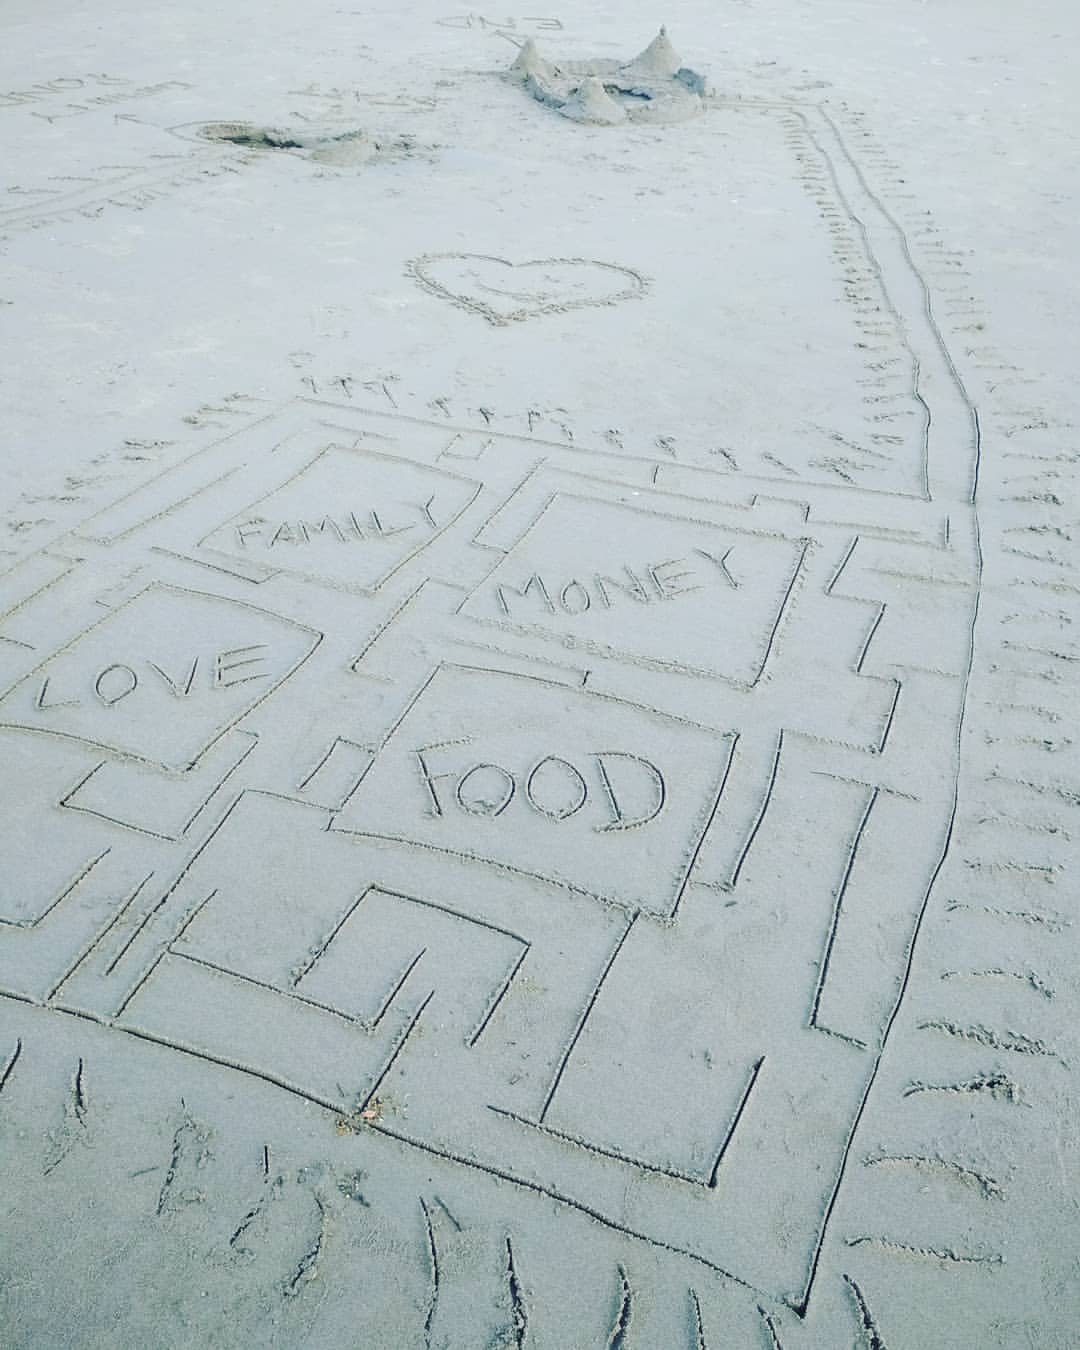 END
FAMILY
MONEY
LOVE
FOOD